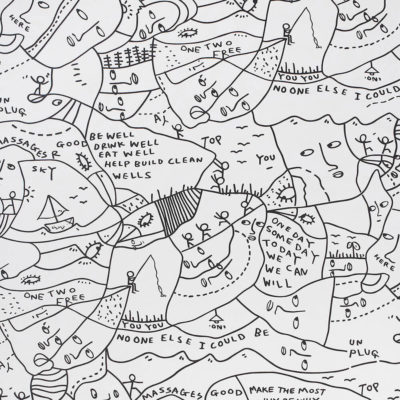 HERE
ONE TWO
FREE
YOU YOU
NO ONE ELSE I COULD
UN
PLUG
MASSAGES R
GOOD
BE WELL
DRINK WELL
EAT WELL
HELP BUILD CLEAN
WELLS
TOP
YOU
SKY
ONE DAY
SOME DAY
TODAY
WE CAN
WE CAN
WILL
HERE
ONE TWO
FREE
YOU YOU
NO ONE ELSE I COULD BE
UN
PLUG
MASSAGES
GOOD
MAKE THE MOST
TOP